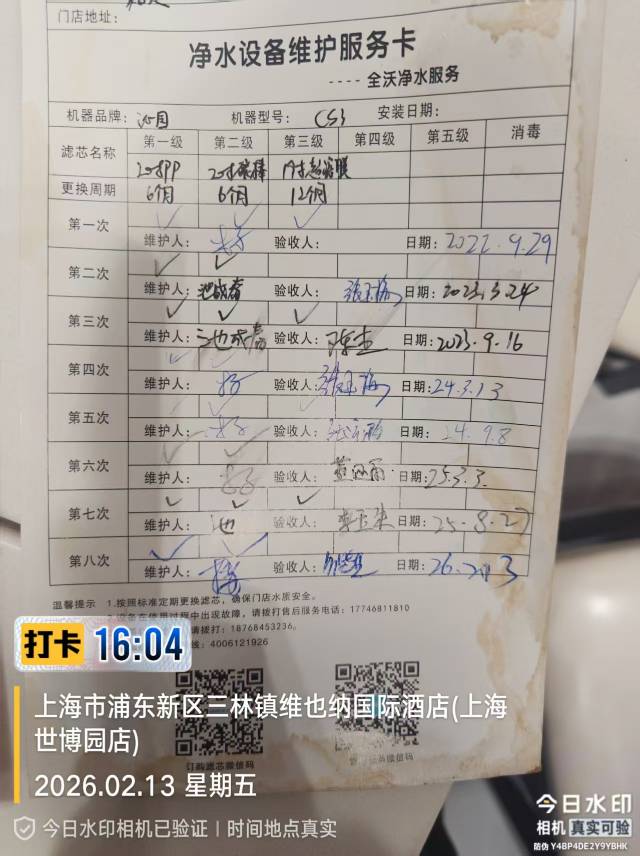 门店地址：
净水设备维护服务卡
----全沃净水服务
机器品牌：沁园 机器型号：CS3 安装日期：
滤芯名称 第一级 第二级 第三级 第四级 第五级 消毒
20寸PP 20寸碳棒
更换周期 6个月 6个月 12个月
第一次 ✓ ✓ ✓
维护人： 验收人： 日期：2022.9.29
第二次 ✓ ✓
维护人：池成斋 验收人：张玉梅 日期：2023.3.24
第三次 ✓ ✓ ✓
维护人：池成斋 验收人：陈杰 日期：2023.9.16
第四次
维护人： 验收人：张玉梅 日期：24.3.13
第五次
维护人： 验收人： 日期：24.9.8
第六次 ✓ ✓
维护人： 验收人： 日期：25.3.3.
第七次 ✓ ✓ ✓
维护人：池 验收人： 日期：25-8.27
第八次 ✓ ✓
维护人： 验收人： 日期：26.2.13
温馨提示 1.按照标准定期更换滤芯，确保门店水质安全。
2.设备在使用过程中出现故障，请拨打售后服务电话：17746811810
请拨打：18768453236。
线：4006121926
打卡 16:04
订购滤芯微信码
上海市浦东新区三林镇维也纳国际酒店(上海
世博园店)
2026.02.13 星期五
今日水印相机已验证 | 时间地点真实
今日水印
相机 真实可验
防伪 Y4BP4DE2Y9YBHK